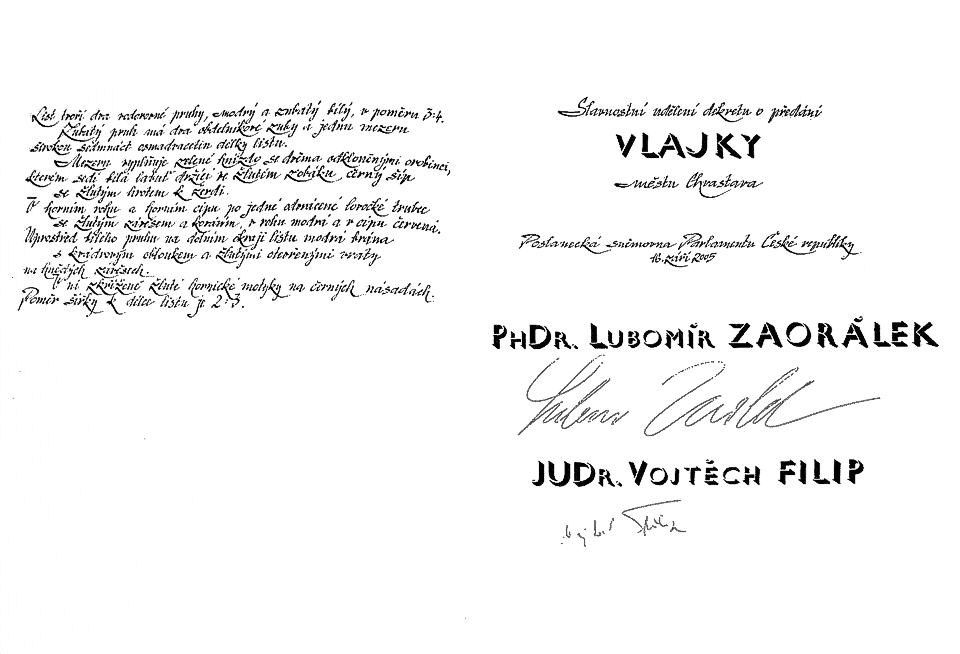 List tvoří dva vodorovné pruhy, modrý a zubatý bílý, v poměru 3:4.
Zubatý pruh má dva obdélníkové zuby a jednu mezeru
širokou sedmnáct osmadvacetin délky listu.
Mezeru vyplňuje zelené hnízdo se dvěma odkloněnými orobinci,
kterém sedí bílá labuť držící ve žlutém zobáku černý šíp
se žlutým hrotem k žerdi.
V horním rohu a horním cípu po jedné odvrácené lovecké trubce
se žlutým závěsem a kováním, v rohu modrá a v cípu červená.
Uprostřed bílého pruhu na dolním okraji listu modrá brána
s kvádrovým obloukem a žlutými otevřenými vraty
na hnědých závěsech.
V ní zkřížené žluté hornické motyky na černých násadách.
Poměr šířky k délce listu je 2:3.
Slavnostní udělení dekretu o předání
VLAJKY
městu Chrastava
Poslanecká sněmovna Parlamentu České republiky
16. září 2005
PHDR. LUBOMÍR ZAORÁLEK
JUDR. VOJTĚCH FILIP